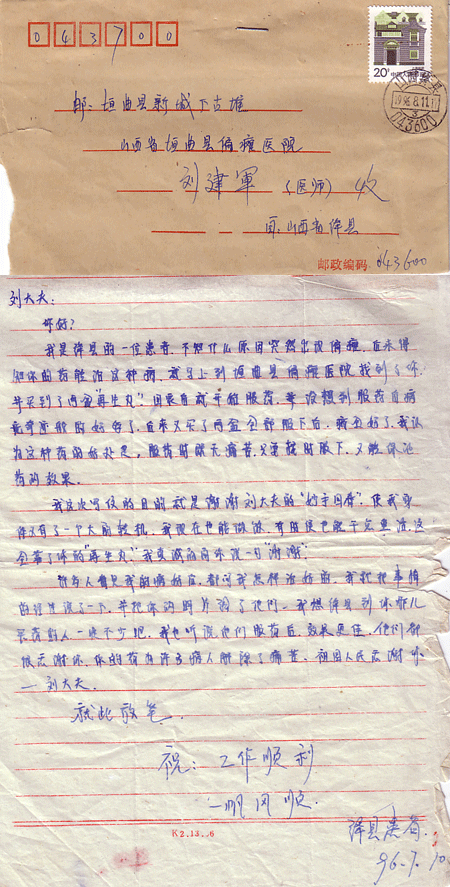 043700
20分 中国人民邮政
山西绛县
1996.8.11
043600
邮:垣曲县新城下古堆
山西省垣曲县偏瘫医院
刘建軍(医师)收
山西省绛县
邮政编码 043600
刘大夫:
你好?
我是绛县的一位患者,不知什么原因突然出现偏瘫,后来得
知你的药能治这种病,就马上到垣曲县偏瘫医院找到了你
并买到了两盒"再生丸",回来后就开始服药,等没想到服药后病
竟奇迹般的好多了,后来又买了两盒全部服下后,病全好了,我认
为这种药的好处是,服药时既无痛苦,又要按时服下,又能保证
药的效果。
我这次写信的目的就是谢谢刘大夫的"妙手回春",使我身
体又有了一个大的转机,我现在也能做饭,有时候也能干点重活,这
全靠了你的"再生丸",我真诚的向你说一句"谢谢"
许多人看见我的病好后,都问我怎样治好的,我就把事情
的经过说了一下,并把你的照片弱了他们,我想绛县到你那儿
买药的人一定不少吧,我也听说他们服药后,效果更佳,他们都
很感谢你,你的药为许多病人解除了痛苦,祖国人民感谢你
—刘大夫.
就此敬笔.
祝:工作顺利
一帆风顺.
绛县患者.
96.7.10
K2.13..6